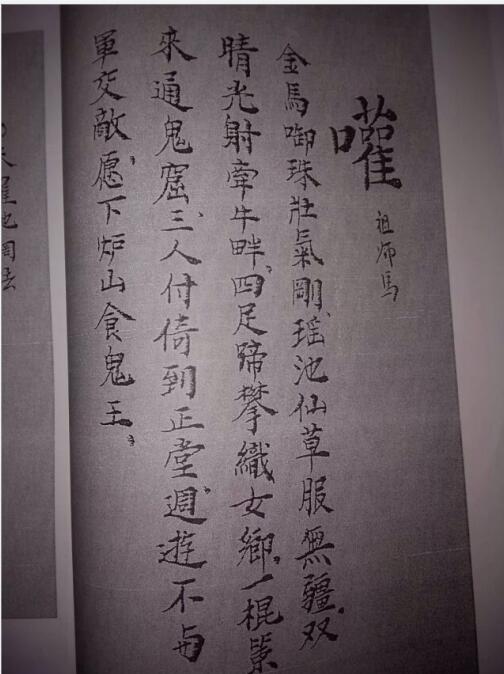 嚾 祖师馬
金馬啣珠壯氣剛、瑶池仙草服無疆、双
晴光射牽牛畔、四足蹄攀織女鄉、一棍
來通鬼窟、三人付倚到正堂、週遊不与
軍交敵、愿下炉山食鬼王。